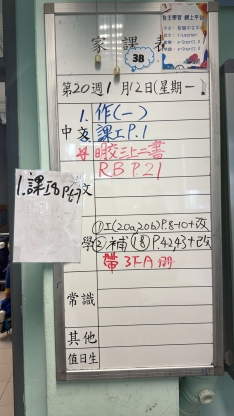 家課表
3B
自主學習 網上平台
第20週 1月12日(星期一)
1. 作(一)
中文 課工P.1
明交三上二書
RB P.21
1. 課工8 P.6-7
文
數學 ① 工(20a,20b) P.8-10+改
② 補(18) P.42,43+改
帶 3FA冊
常識
其他
值日生